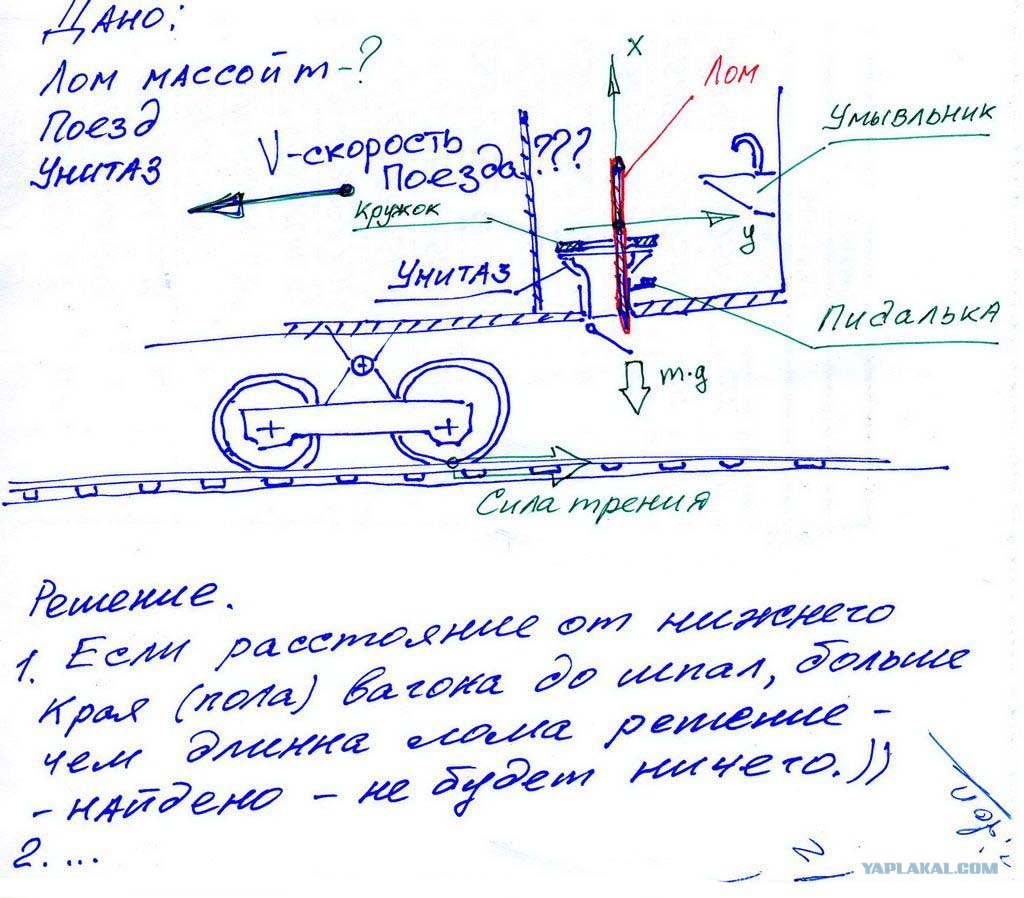 Дано:
Лом массой m-?
Поезд
Унитаз
V-скорость
поезда ???
x
Лом
Умывльник
Кружок
y
Унитаз
Пидалька
m·g
Сила трения
Решение.
1. Если расстояние от нижнего
края (пола) вагона до шпал, больше
чем длинна лома решение -
- найдено - не будет ничего.))
2. ...
YAPLAKAL.COM